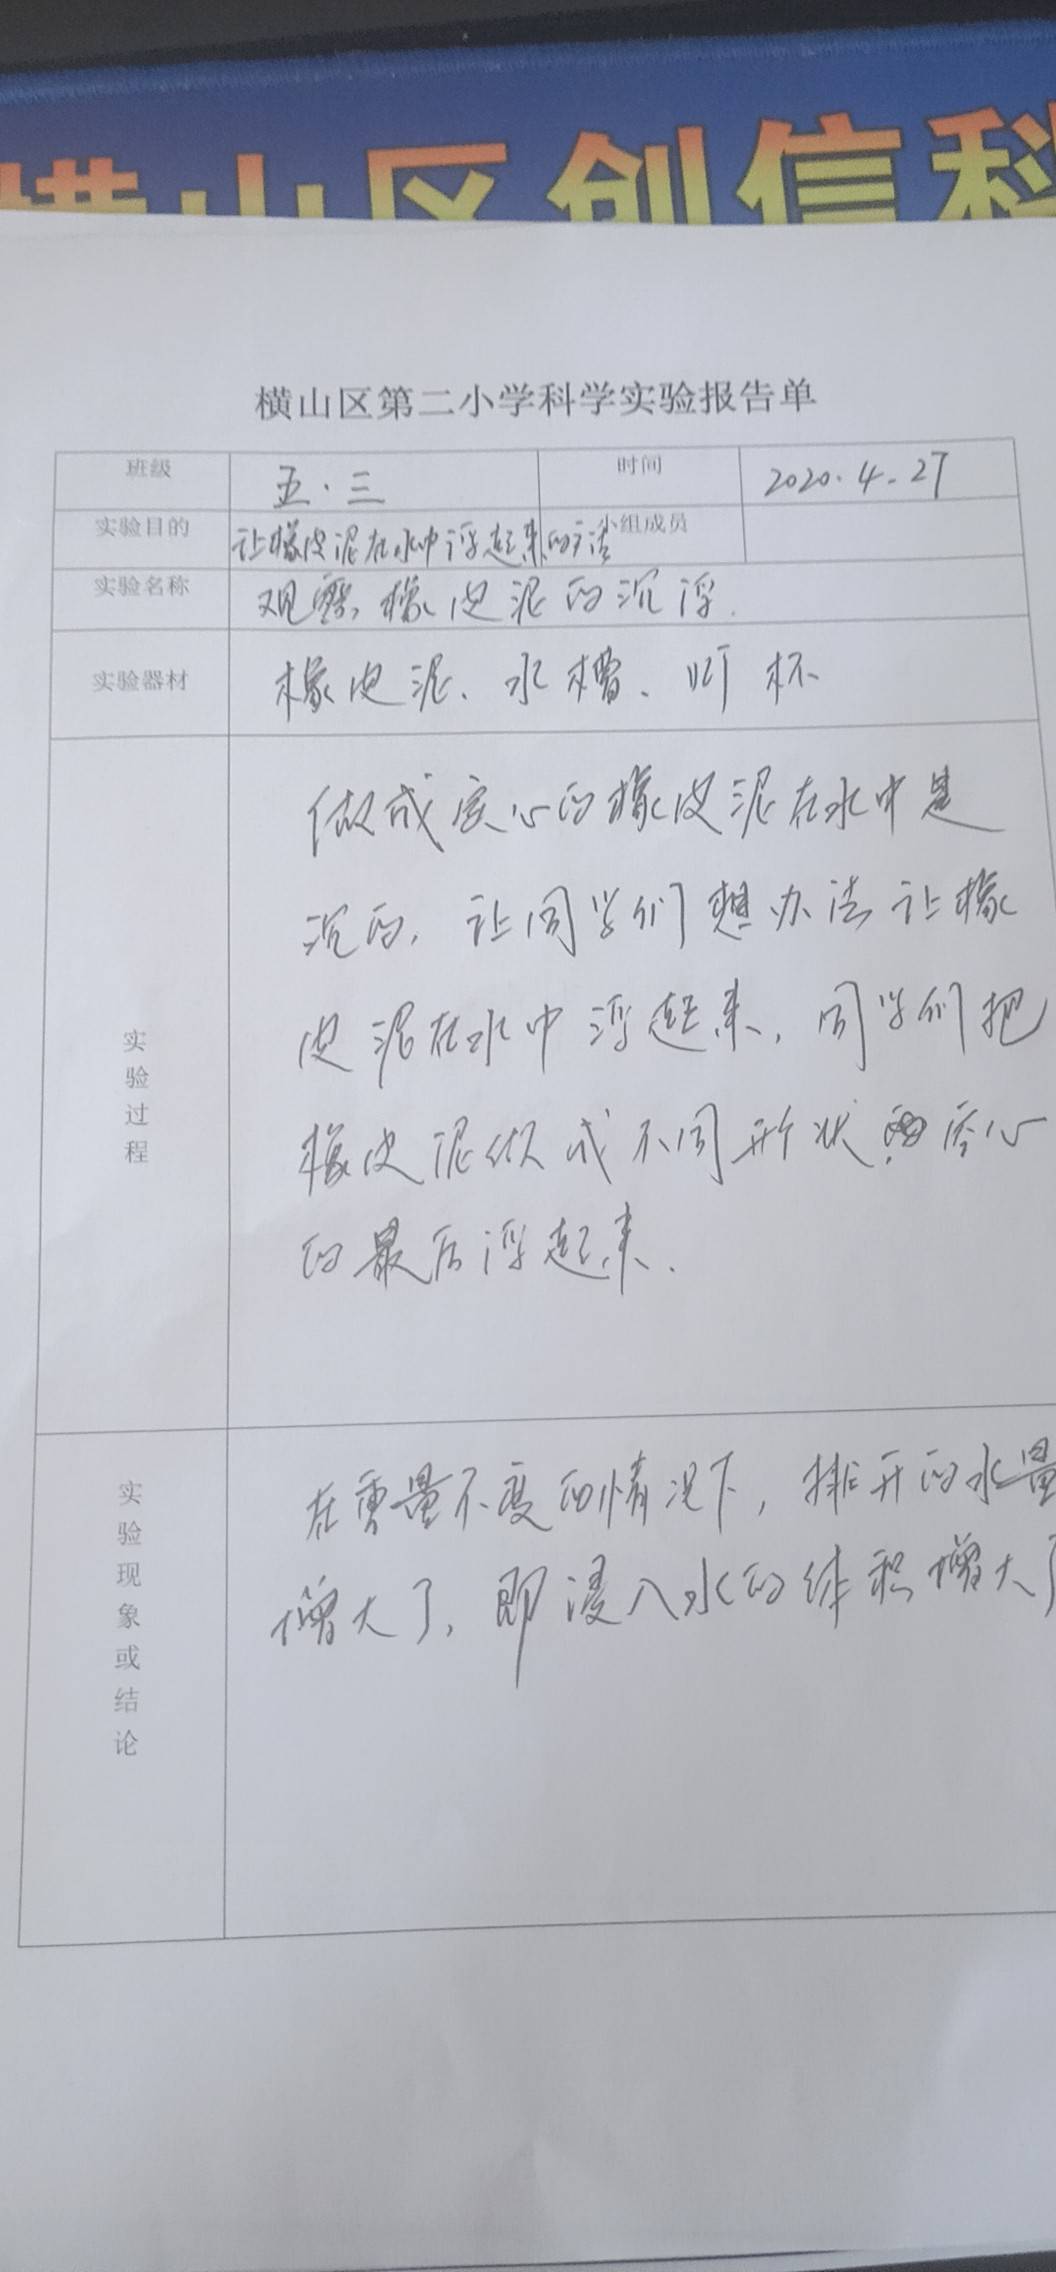 横山区创信科
横山区第二小学科学实验报告单
班级 五.三 时间 2020.4.27
实验目的 让橡皮泥在水中浮起来的方法 小组成员
实验名称 观察橡皮泥的沉浮.
实验器材 橡皮泥、水槽、听杯
实验过程
做成实心的橡皮泥在水中是
沉的,让同学们想办法让橡
皮泥在水中浮起来,同学们把
橡皮泥做成不同形状 空心
的最后浮起来.
实验现象或结论
在重量不变的情况下,排开的水量
增大了,即浸入水的体积增大了